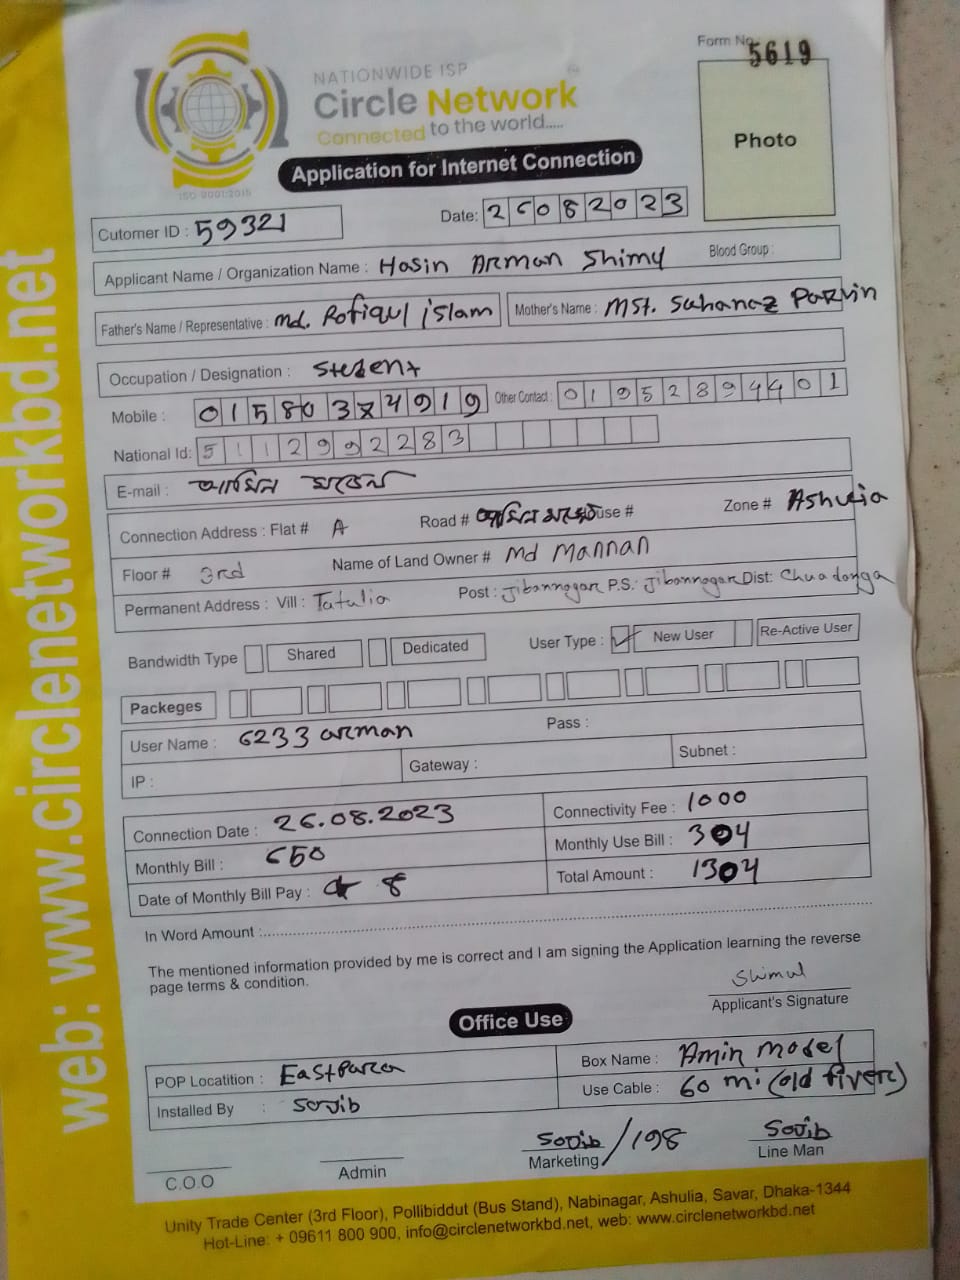 Form No. 5619
NATIONWIDE ISP
Circle Network
Connected to the world.....
ISO 9001:2015
Application for Internet Connection
Photo
Cutomer ID : 59321
Date: 26082023
Applicant Name / Organization Name : Hasin Arman Shimul Blood Group :
Father's Name / Representative : Md. Rofiqul islam Mother's Name : MST. Sahanaz Parvin
Occupation / Designation : Student
Mobile : 01580374919 Other Contact : 01952894401
National Id: 5112992283
E-mail : আমিন মডেল
Connection Address : Flat # A Road # আমিন মডেল use # Zone # Ashulia
Floor # 3rd Name of Land Owner # Md Mannan
Permanent Address : Vill : Tatulia Post : Jibannogar P.S.: Jibannogar Dist: Chuadanga
Bandwidth Type Shared Dedicated User Type : ✓ New User Re-Active User
Packeges
User Name : 6233 arman Pass :
IP : Gateway : Subnet :
Connection Date : 26.08.2023 Connectivity Fee : 1000
Monthly Bill : 650 Monthly Use Bill : 304
Date of Monthly Bill Pay : 8 Total Amount : 1304
In Word Amount :
The mentioned information provided by me is correct and I am signing the Application learning the reverse
page terms & condition.
Shimul
Applicant's Signature
Office Use
POP Locatition : Eastpara Box Name : Amin Model
Installed By : Sojib Use Cable : 60 mi (old fiver)
C.O.O
Admin
Sojib/198
Marketing
Sojib
Line Man
Unity Trade Center (3rd Floor), Pollibiddut (Bus Stand), Nabinagar, Ashulia, Savar, Dhaka-1344
Hot-Line: + 09611 800 900, info@circlenetworkbd.net, web: www.circlenetworkbd.net
web: www.circlenetworkbd.net